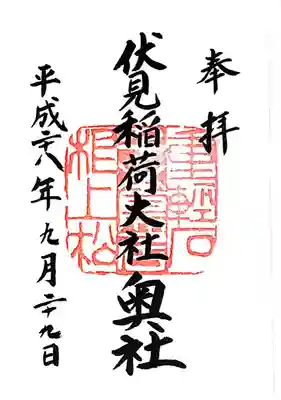 奉拝
伏見稲荷大社奥社
平成廿八年九月二十九日